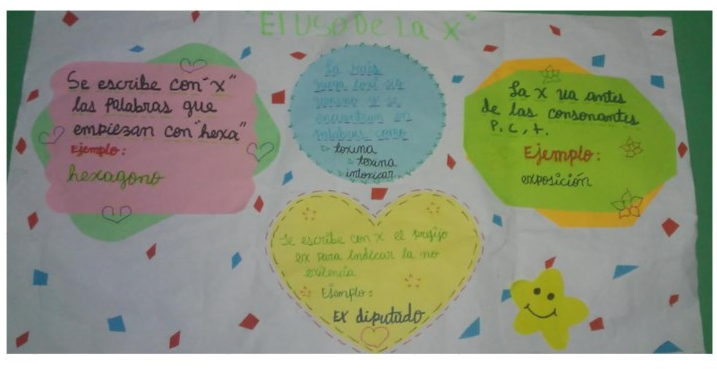 "El Uso De La x"
Se escribe con "x"
las Palabras que
empiezan con "hexa"
Ejemplo:
hexagono
La
y se
encuentran en
palabras como
toxina
toxina
intoxicar
La x va antes
de las consonantes
P, C, t.
Ejemplo:
exposición
Se escribe con x el prefijo
ex para indicar la no
Ejemplo:
Ex diputado